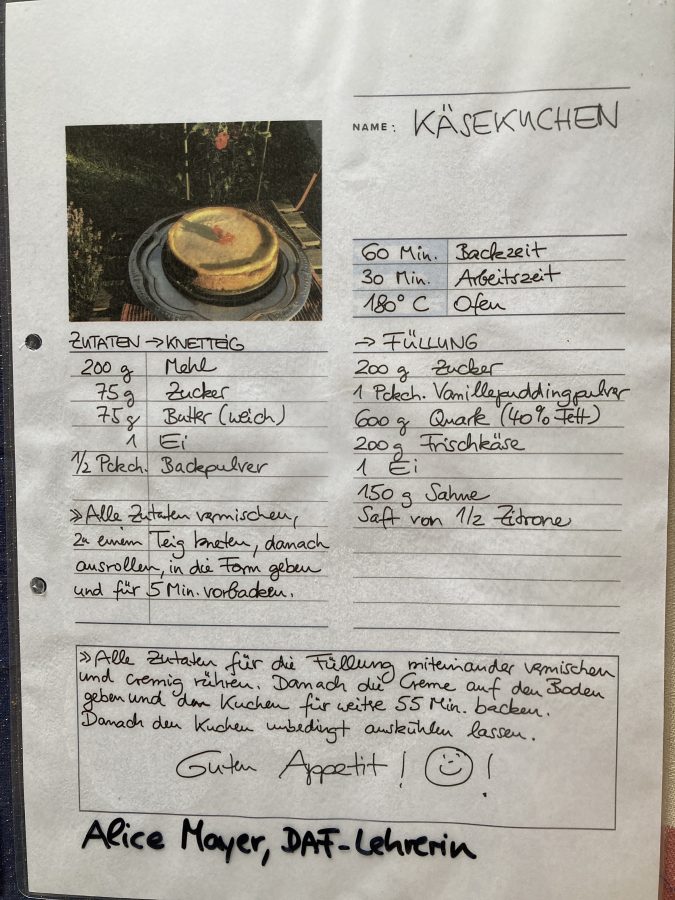 NAME: KÄSEKUCHEN
60 Min. Backzeit
30 Min. Arbeitszeit
180° C Ofen
ZUTATEN → KNETTEIG
200 g Mehl
75 g Zucker
75 g Butter (weich)
1 Ei
1/2 Pckch. Backpulver
» Alle Zutaten vermischen,
zu einem Teig kneten, danach
ausrollen, in die Form geben
und für 5 Min. vorbacken.
→ FÜLLUNG
200 g Zucker
1 Pckch. Vanillepuddingpulver
600 g Quark (40% Fett)
200 g Frischkäse
1 Ei
150 g Sahne
Saft von 1/2 Zitrone
» Alle Zutaten für die Füllung miteinander vermischen
und cremig rühren. Danach die Creme auf den Boden
geben und den Kuchen für weitre 55 Min. backen.
Danach den Kuchen unbedingt auskühlen lassen.
Guten Appetit! !
Alice Mayer, DAF-Lehrerin